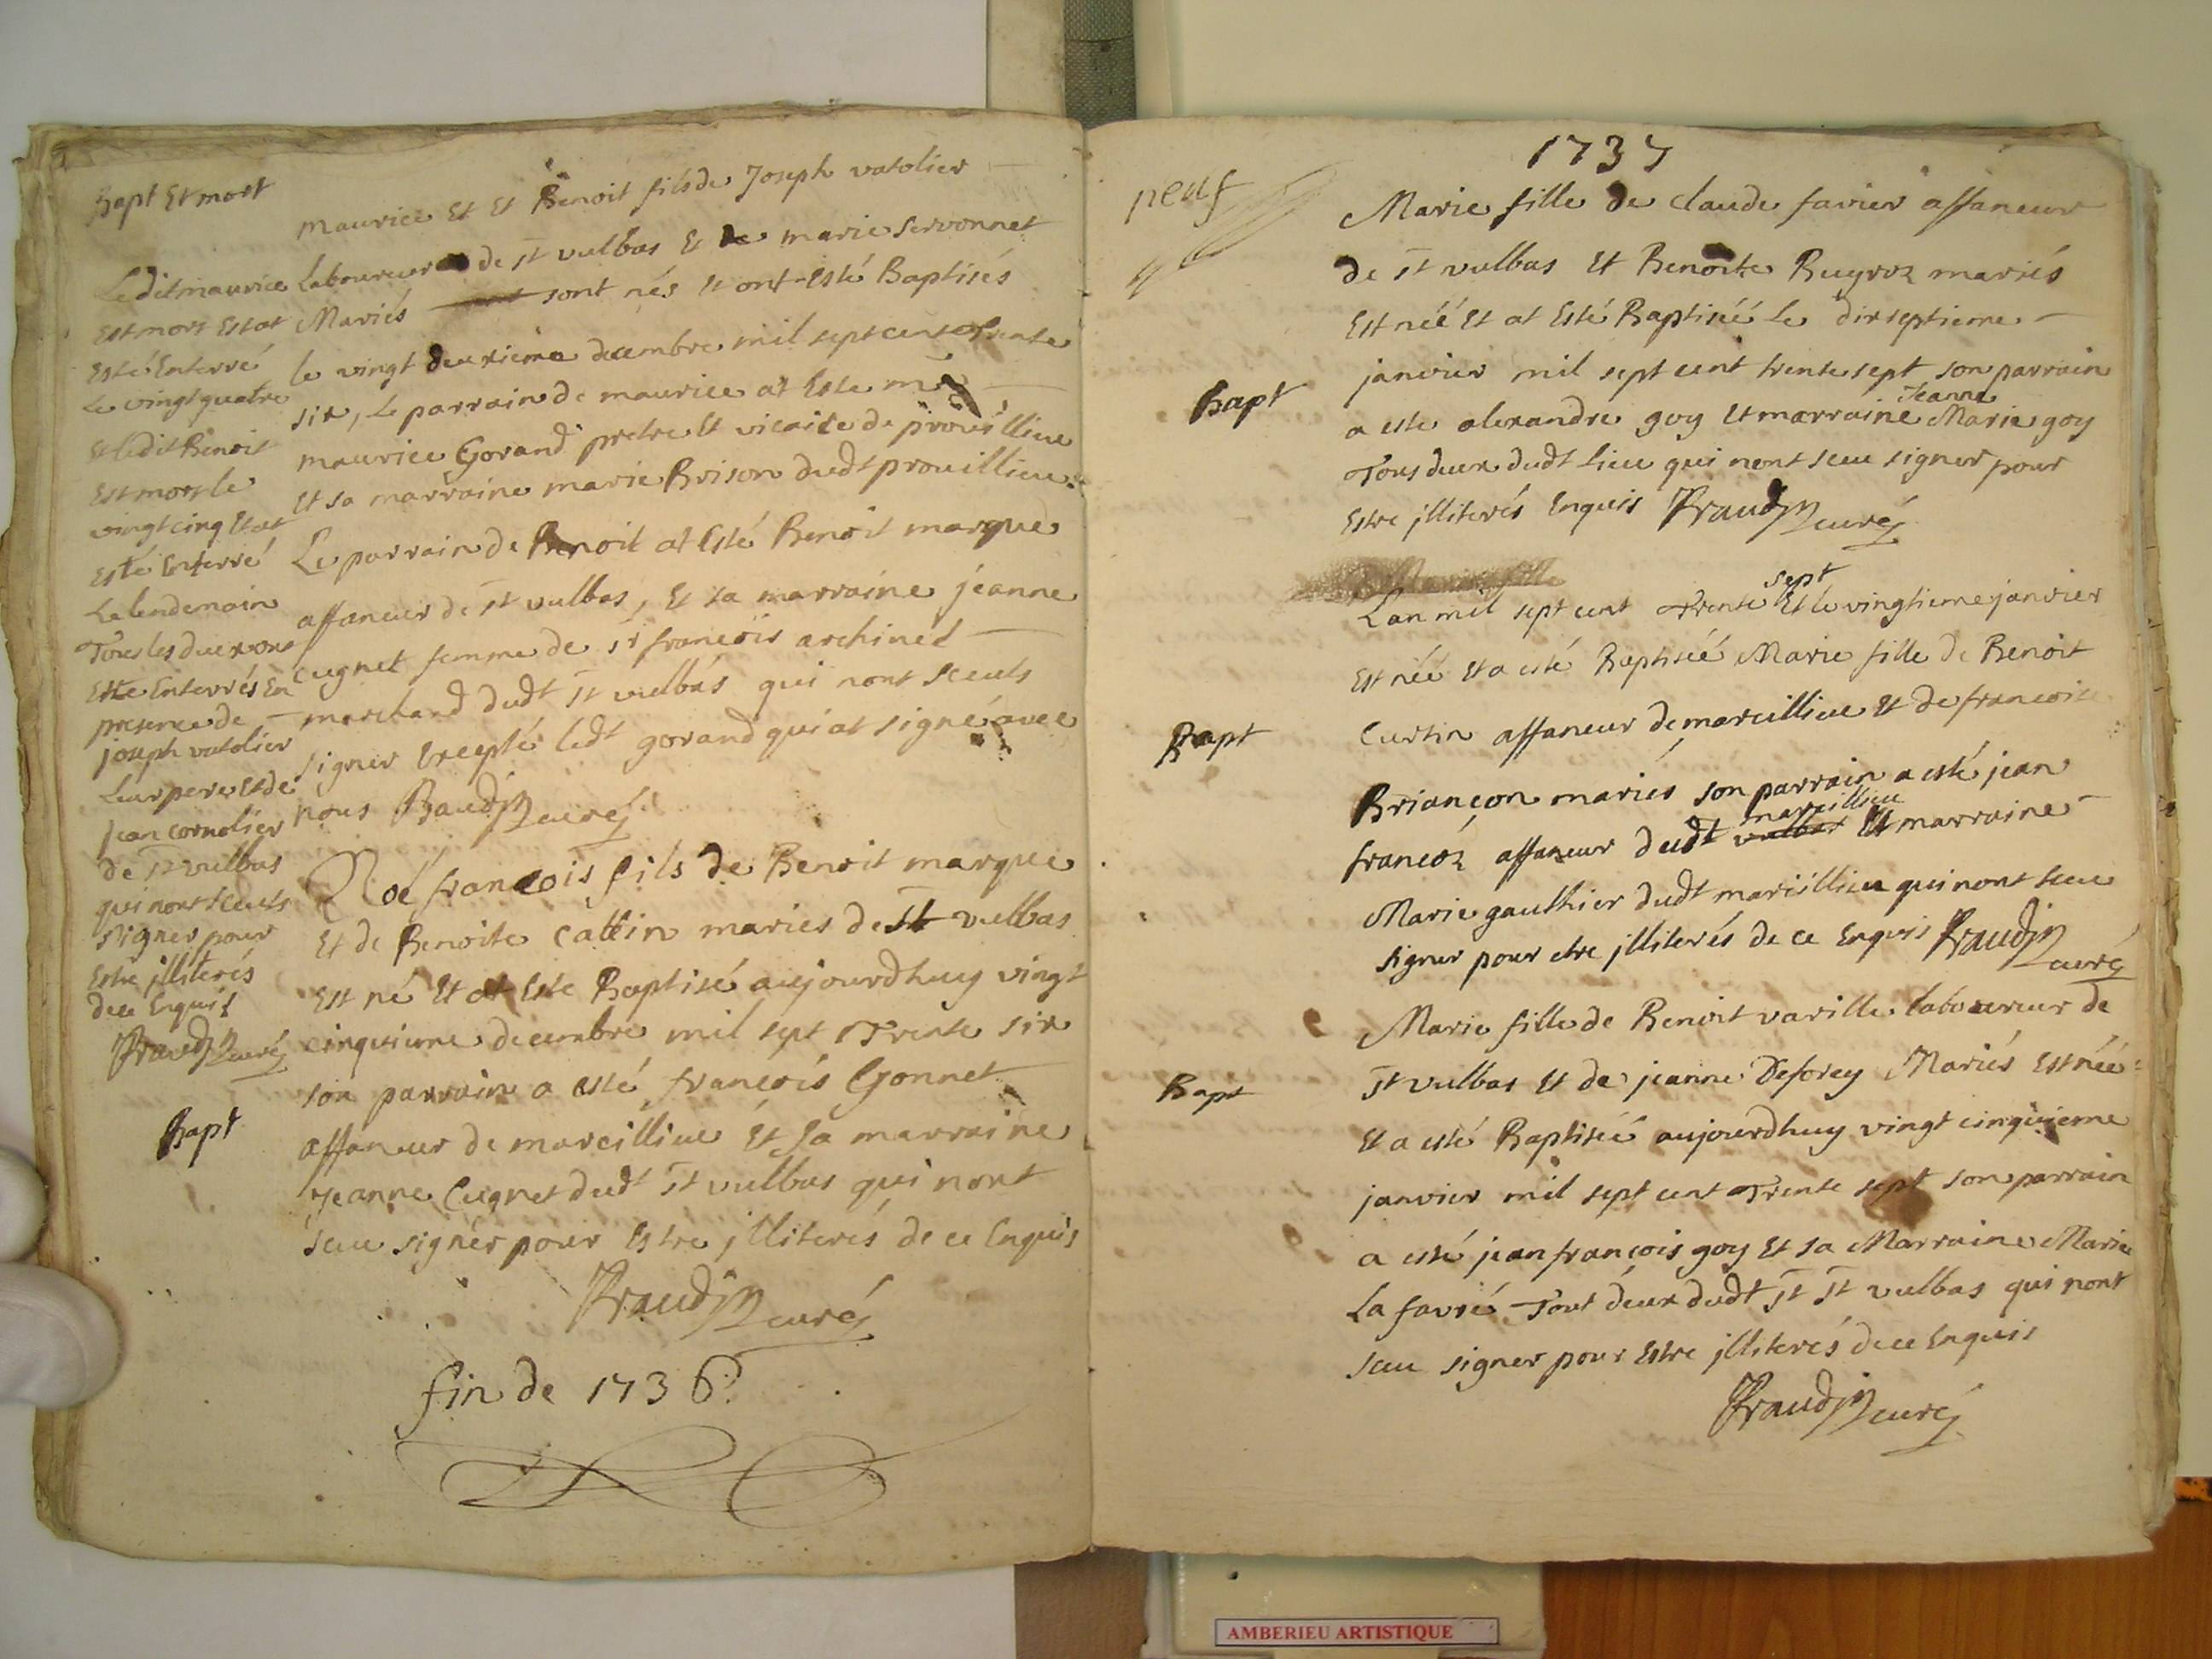 Bapt Et mort
maurice Et Et Benoit fils de Joseph vatolier
laboureur de St vulbas Et de marie servonnet
Mariés sont nés et ont Esté Baptisés
le vingt deuxieme decembre mil sept cent Trente
six, Le parrain de maurice at Este mre
maurice Gorand pretre Et vicaire de prouillieu
Et sa marraine marie Brison dudt prouillieu.
Le parrain de Benoit at Esté Benoit marque
affaneur de St vulbas, Et sa marraine jeanne
cugnet femme de sr francois archinet
marchand dudt St vulbas qui nont sceuts
signer Excepté ledt gorand qui at signé avec
nous Braudin curé
Ledit maurice
Est mort Est at
Esté Enterré
Le vingt quatre
Et ledit Benoit
Est mort le
vingt cinq Et at
Esté Enterré
Le lendemain
Tous les deux ont
Este Enterrés En
presence de
joseph vatolier
Leur pere Et de
jean cornolier
de St vulbas
qui nont sceuts
signer pour
Estre jlliterés
de ce Enquis
Braudin curé
Bapt
Noé francois fils de Benoit marque
Et de Benoite Cattin maries de St vulbas
Est né Et at Este Baptisé aujourdhuy vingt
cinquieme decembre mil sept Trente six
son parrain a esté francois Gonnet
affaneur de marcillieu Et sa marraine
jeanne Cugnet dudt St vulbas qui nont
sceu signer pour Estre jlliterés de ce Enquis
Braudin curé
fin de 1736
1737
neuf
Marie fille de claude favier affaneur
de St vulbas Et Benoite Rugroz mariés
Est néé Et at Esté Baptiséé Le dixseptieme
janvier mil sept cent trente sept son parrain
Bapt
Jeanne
a este alexandre goy Et marraine Marie goy
Tous deux dudt Lieu qui nont sceu signer pour
Estre jlliterés Enquis Braudin curé
Marie fille
sept
Lan mil sept cent Trente Et le vingtieme janvier
Est néé Et a esté Baptiséé Marie fille de Benoit
Bapt
Curtin affaneur de marcillieu Et de francoise
Briançon mariés son parrain a esté jean
marcillieu
francoz affaneur dudt vulbas Et marraine
Marie gaulhier dudt marcillieu qui nont sceu
signer pour etre jlliterés de ce Enquis Braudin curé
Marie fille de Benoit varille laboureur de
Bapt
St vulbas Et de jeanne Deforey Mariés Est néé
Et a esté Baptiséé aujourdhuy vingt cinquieme
janvier mil sept cent Trente sept son parrain
a esté jean françois goy Et sa Marraine Marie
La favré Tout deux dudt St St vulbas qui nont
sceu signer pour Estre jlliterés de ce Enquis
Braudin curé
AMBERIEU ARTISTIQUE